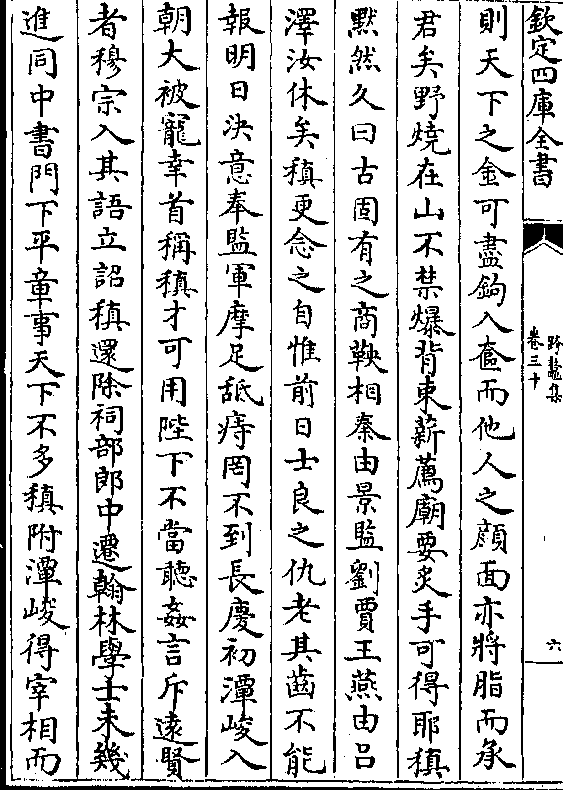 欽定四庫全書
路𩦸集
卷三十
六
則天下之金可盡鉤入奩而他人之顔面亦將脂而承
君矣野燒在山不禁爆背東薪薦廟要炙手可得耶稹
黙然久曰古固有之商鞅相秦由景監劉賈王燕由吕
澤汝休矣稹更念之自惟前日士良之仇老其齒不能
報明日決意奉監軍摩足舐痔罔不到長慶初潭峻入
朝大被寵幸首稱稹才可用陛下不當聽姦言斥逺賢
者穆宗入其語立詔稹還除祠部郎中遷翰林學士未幾
進同中書門下平章事天下不多稹附潭峻得宰相而